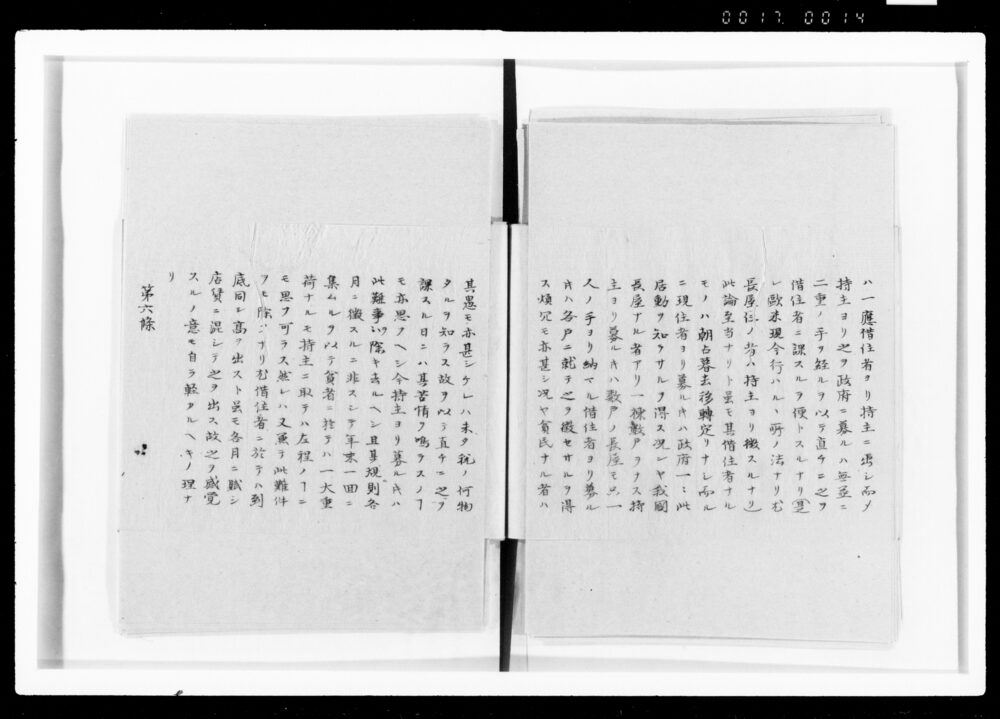 0017 0014
ハ一應借住者ヨリ持主ニ出シ而〆
持主ヨリ之ヲ政府ニ募ルハ無益ニ
二重ノ手ヲ経ルヲ以テ直チニ之ヲ
借住者ニ課スルヲ便トスルナリ(是
レ歐米現今行ハルヽ所ノ法ナリ尤
長屋住ノ者ハ持主ヨリ徴スルナリ)
此論至当ナリト虽モ其借住者ナル
モノハ朝占暮去移轉定リナシ而ル
ニ現住者ヨリ募ル𪜈ハ政府一々此
居動ヲ知ラサルヲ得ス況ンヤ我國
長屋ナル者アリ一棟數戸ヲナス持
主ヨリ募ル𪜈ハ數戸ノ長屋モ只一
人ノ手ヨリ納マル借住者ヨリ募ル
𪜈ハ各戸ニ就テ之ヲ徴セサルヲ得
ス煩冗モ亦甚シ況ヤ貧民ナル者ハ
其愚モ亦甚シケレハ未タ税ノ何物
タルヲ知ラス故ヲ以テ直チニ之ヲ
課スル日ニハ甚苦情ヲ鳴ラスノヿ
モ亦思フヘシ今持主ヨリ募ル𪜈ハ
此難事ハ除キ去ルヘシ且其規則各
月ニ徴スルニ非スシテ年末一回ニ
集ムルヲ以テ貧者ニ於テハ一大重
荷ナルモ持主ニ取テハ左程ノヿニ
モ思フ可ラス然レハ又更テ此難件
ヲモ除ゾナリ尤借住者ニ於テハ到
底同シ高ヲ出スト虽モ各月ニ賦シ
店賃ニ混シテ之ヲ出ス故之ヲ感覚
スルノ意モ自ラ軽カルヘキノ理ナ
リ
第六條